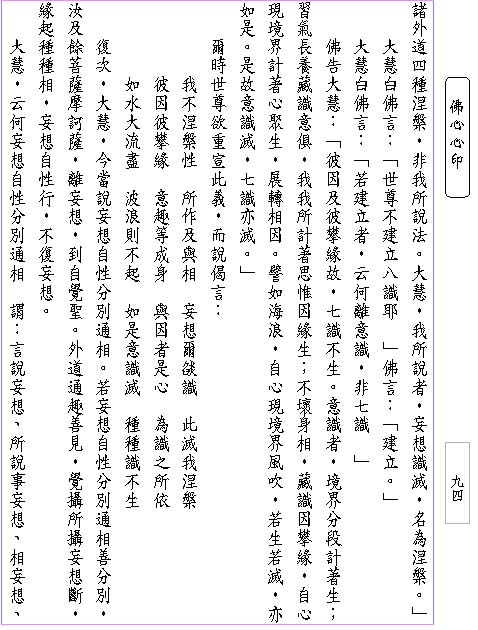 諸外道四種涅槃，非我所說法。大慧，我所說者，妄想識滅，名為涅槃。」
大慧白佛言：「世尊不建立八識耶　」佛言：「建立。」
大慧白佛言：「若建立者，云何離意識，非七識　」
佛告大慧：「彼因及彼攀緣故，七識不生。意識者，境界分段計著生；
習氣長養藏識意俱，我我所計著思惟因緣生；不壞身相，藏識因攀緣，自心
現境界計著心聚生，展轉相因。譬如海浪，自心現境界風吹，若生若滅，亦
如是。是故意識滅，七識亦滅。」
爾時世尊欲重宣此義，而說偈言：
我不涅槃性　所作及與相　妄想爾燄識　此滅我涅槃
彼因彼攀緣　意趣等成身　與因者是心　為識之所依
如水大流盡　波浪則不起　如是意識滅　種種識不生
復次，大慧，今當說妄想自性分別通相。若妄想自性分別通相善分別，
汝及餘菩薩摩訶薩，離妄想，到自覺聖。外道通趣善見，覺攝所攝妄想斷，
緣起種種相，妄想自性行，不復妄想。
大慧，云何妄想自性分別通相　謂：言說妄想、所說事妄想、相妄想、
佛心心印
九四